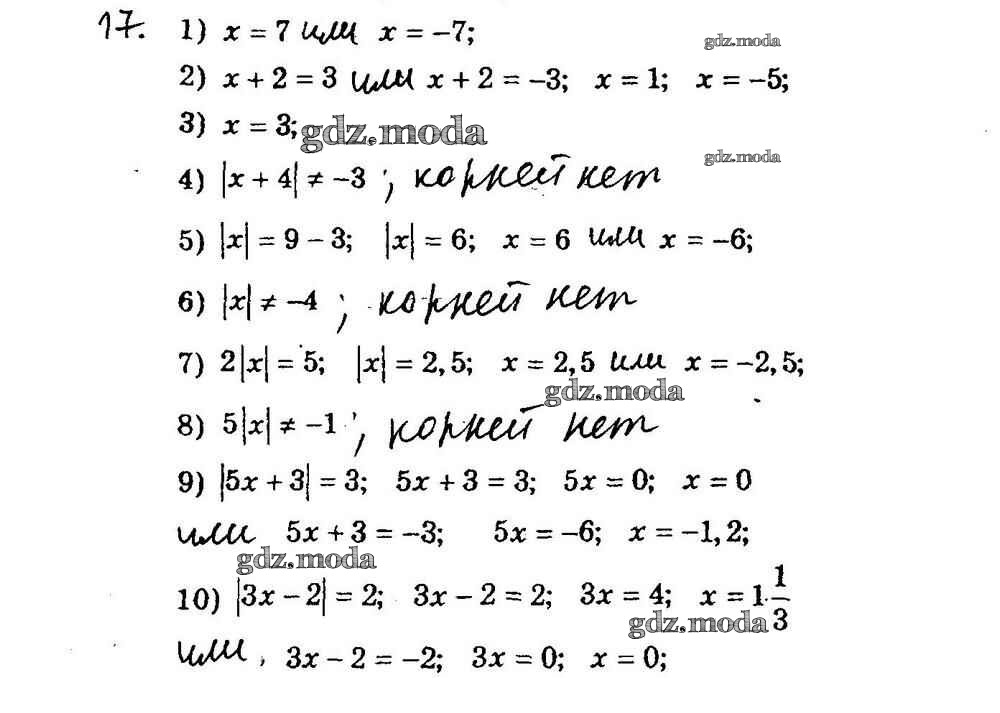 17. 1) x = 7 или x = −7; gdz.moda
2) x + 2 = 3 или x + 2 = −3; x = 1; x = −5;
3) x = 3; gdz.moda
gdz.moda
4) |x + 4| ≠ −3 ; корней нет
5) |x| = 9 − 3; |x| = 6; x = 6 или x = −6;
6) |x| ≠ −4 ; корней нет
7) 2|x| = 5; |x| = 2,5; x = 2,5 или x = −2,5;
gdz.moda
8) 5|x| ≠ −1 ; корней нет
9) |5x + 3| = 3; 5x + 3 = 3; 5x = 0; x = 0
или 5x + 3 = −3; 5x = −6; x = −1,2;
gdz.moda
10) |3x − 2| = 2; 3x − 2 = 2; 3x = 4; x = 1 1/3
gdz.moda
или, 3x − 2 = −2; 3x = 0; x = 0;